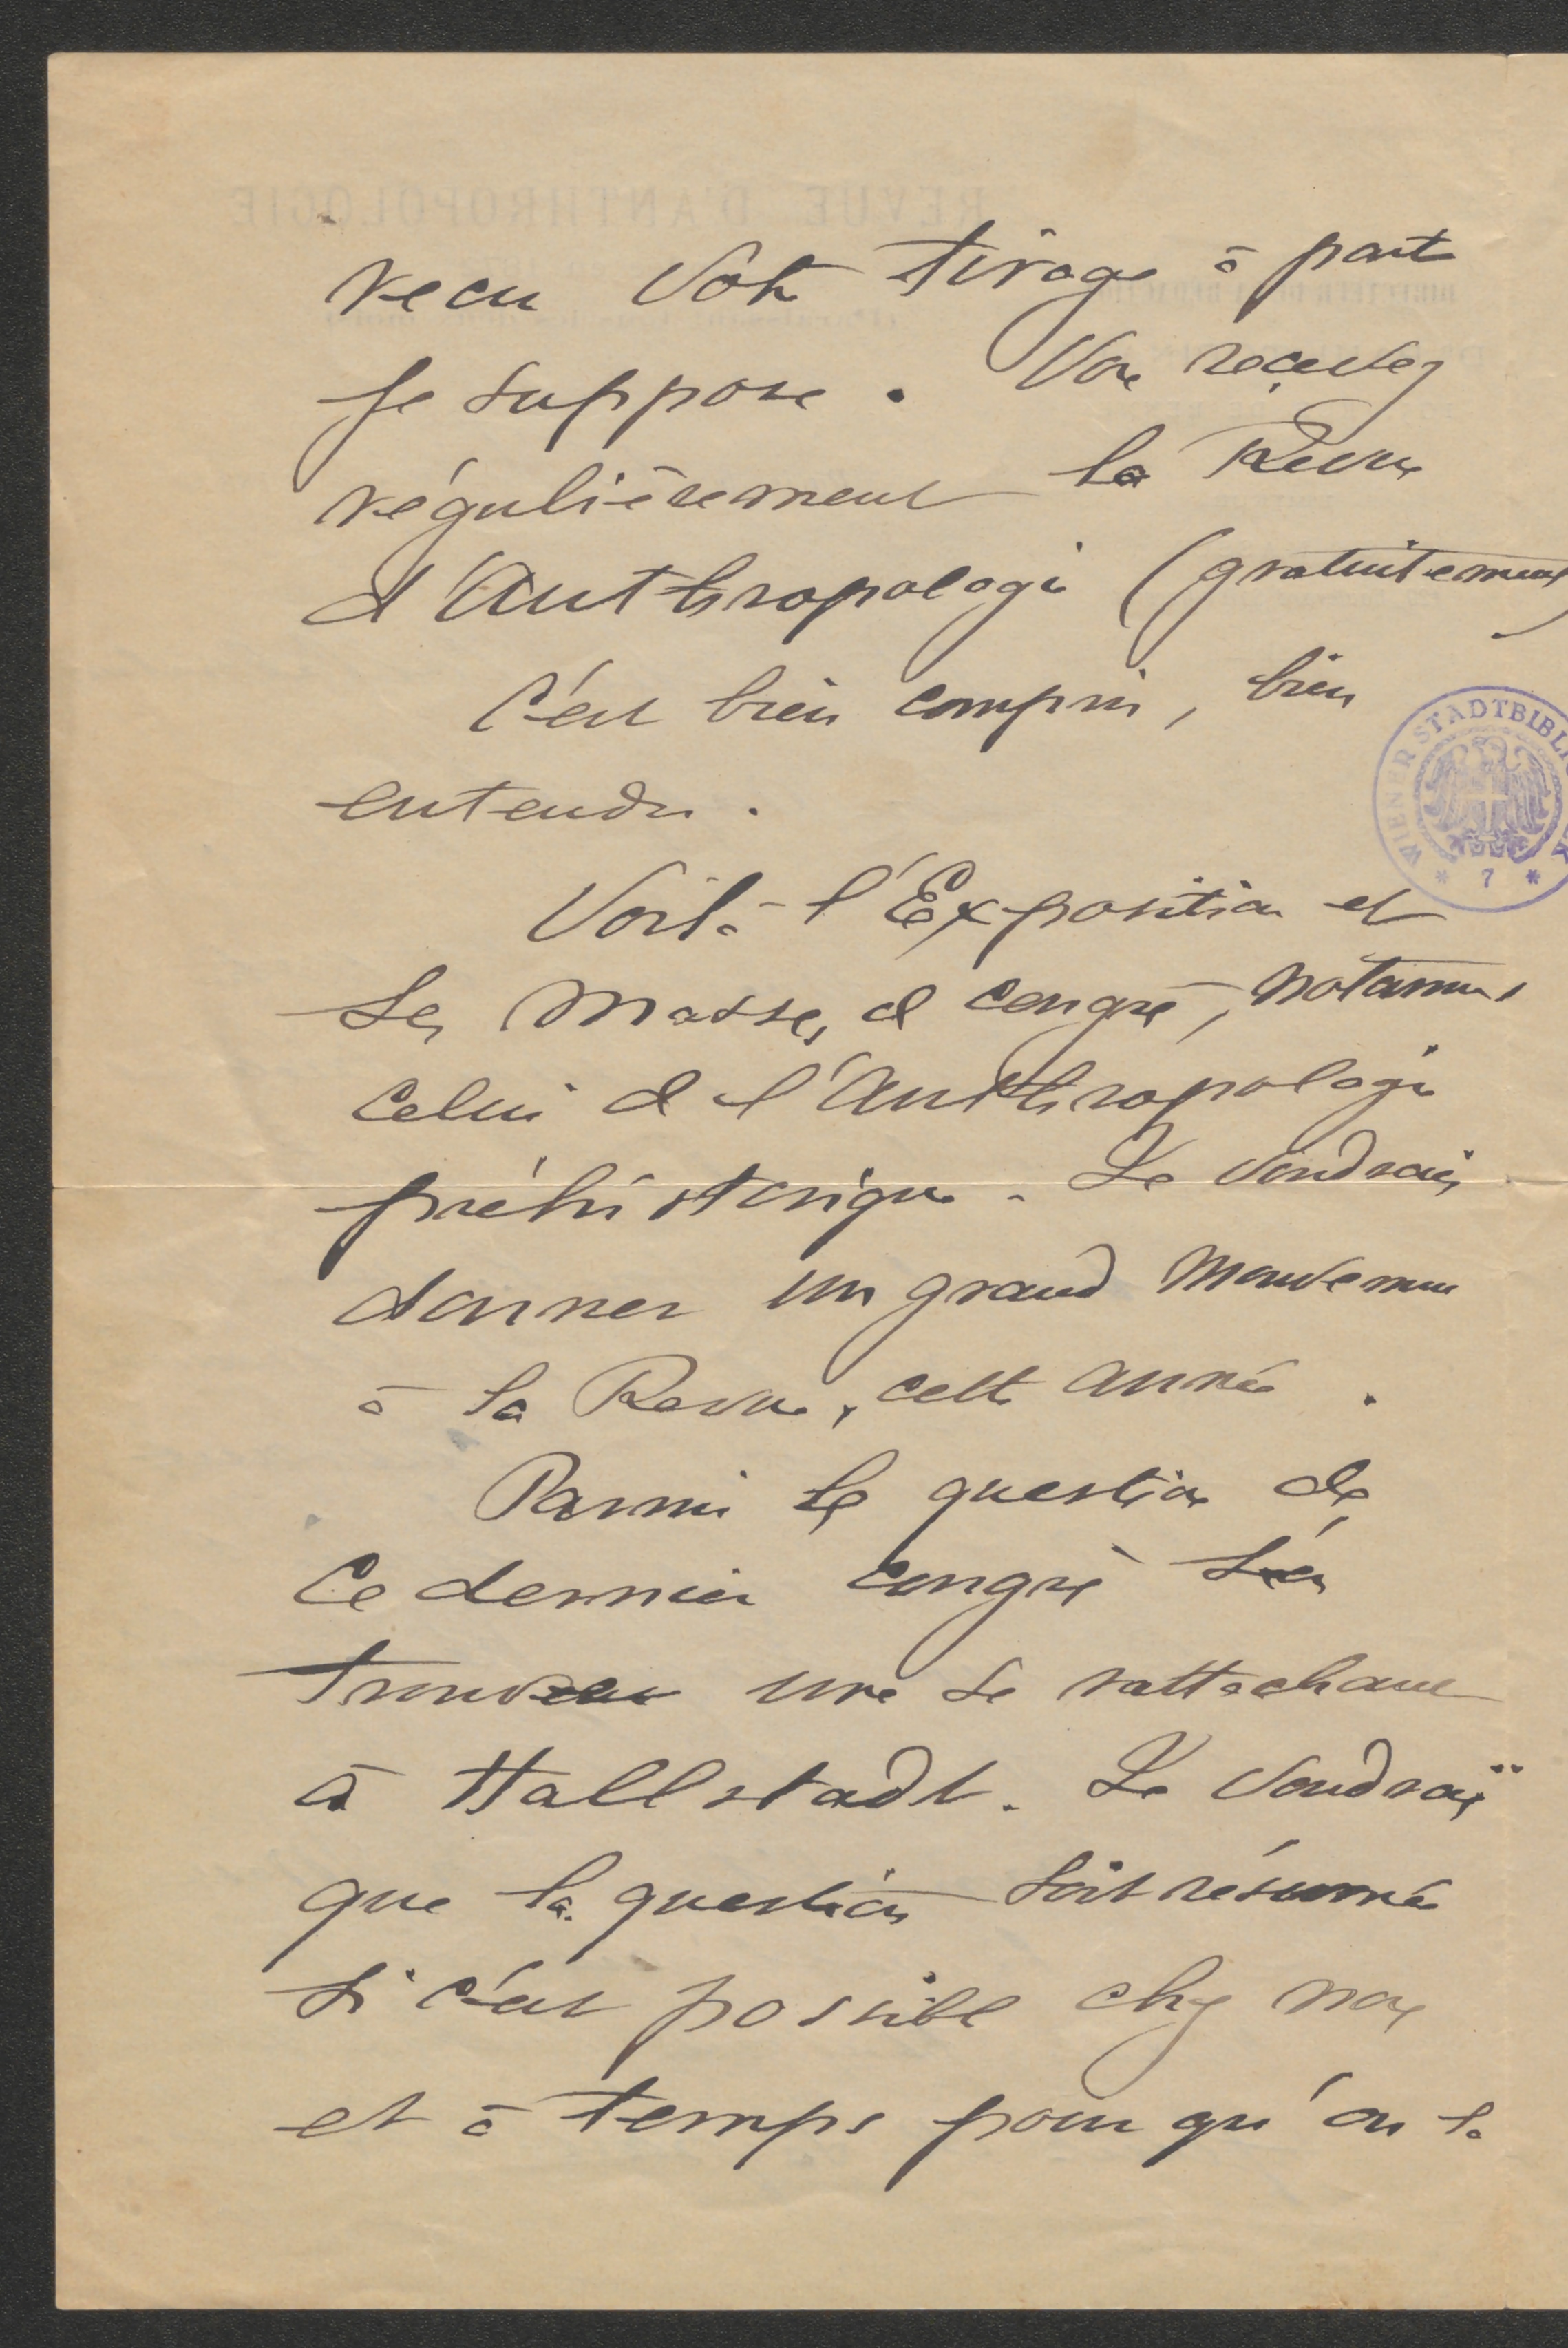 recu votre tirage à part
je suppose. Vous recevez
régulièrement la Revue
d'Anthropologie (gratuitement)
C'est bien compris, bien
entendu.
Voilà l'Exposition et
ses masses de congrès, notamment
celui de l'Anthropologie
préhistorique. Je voudrais
donner un grand mouvement
à la Revue, cette année.
Parmi les questions de
ce dernier congrès s'en
trouve une se rattachant
à Hallstadt. Je voudrais
que la question soit résumée
si c'est possible chez nous
et à temps pour qu'on la
WIENER STADTBIBLIO
* 7 *
REVUE D'ANTHROPOLOGIE